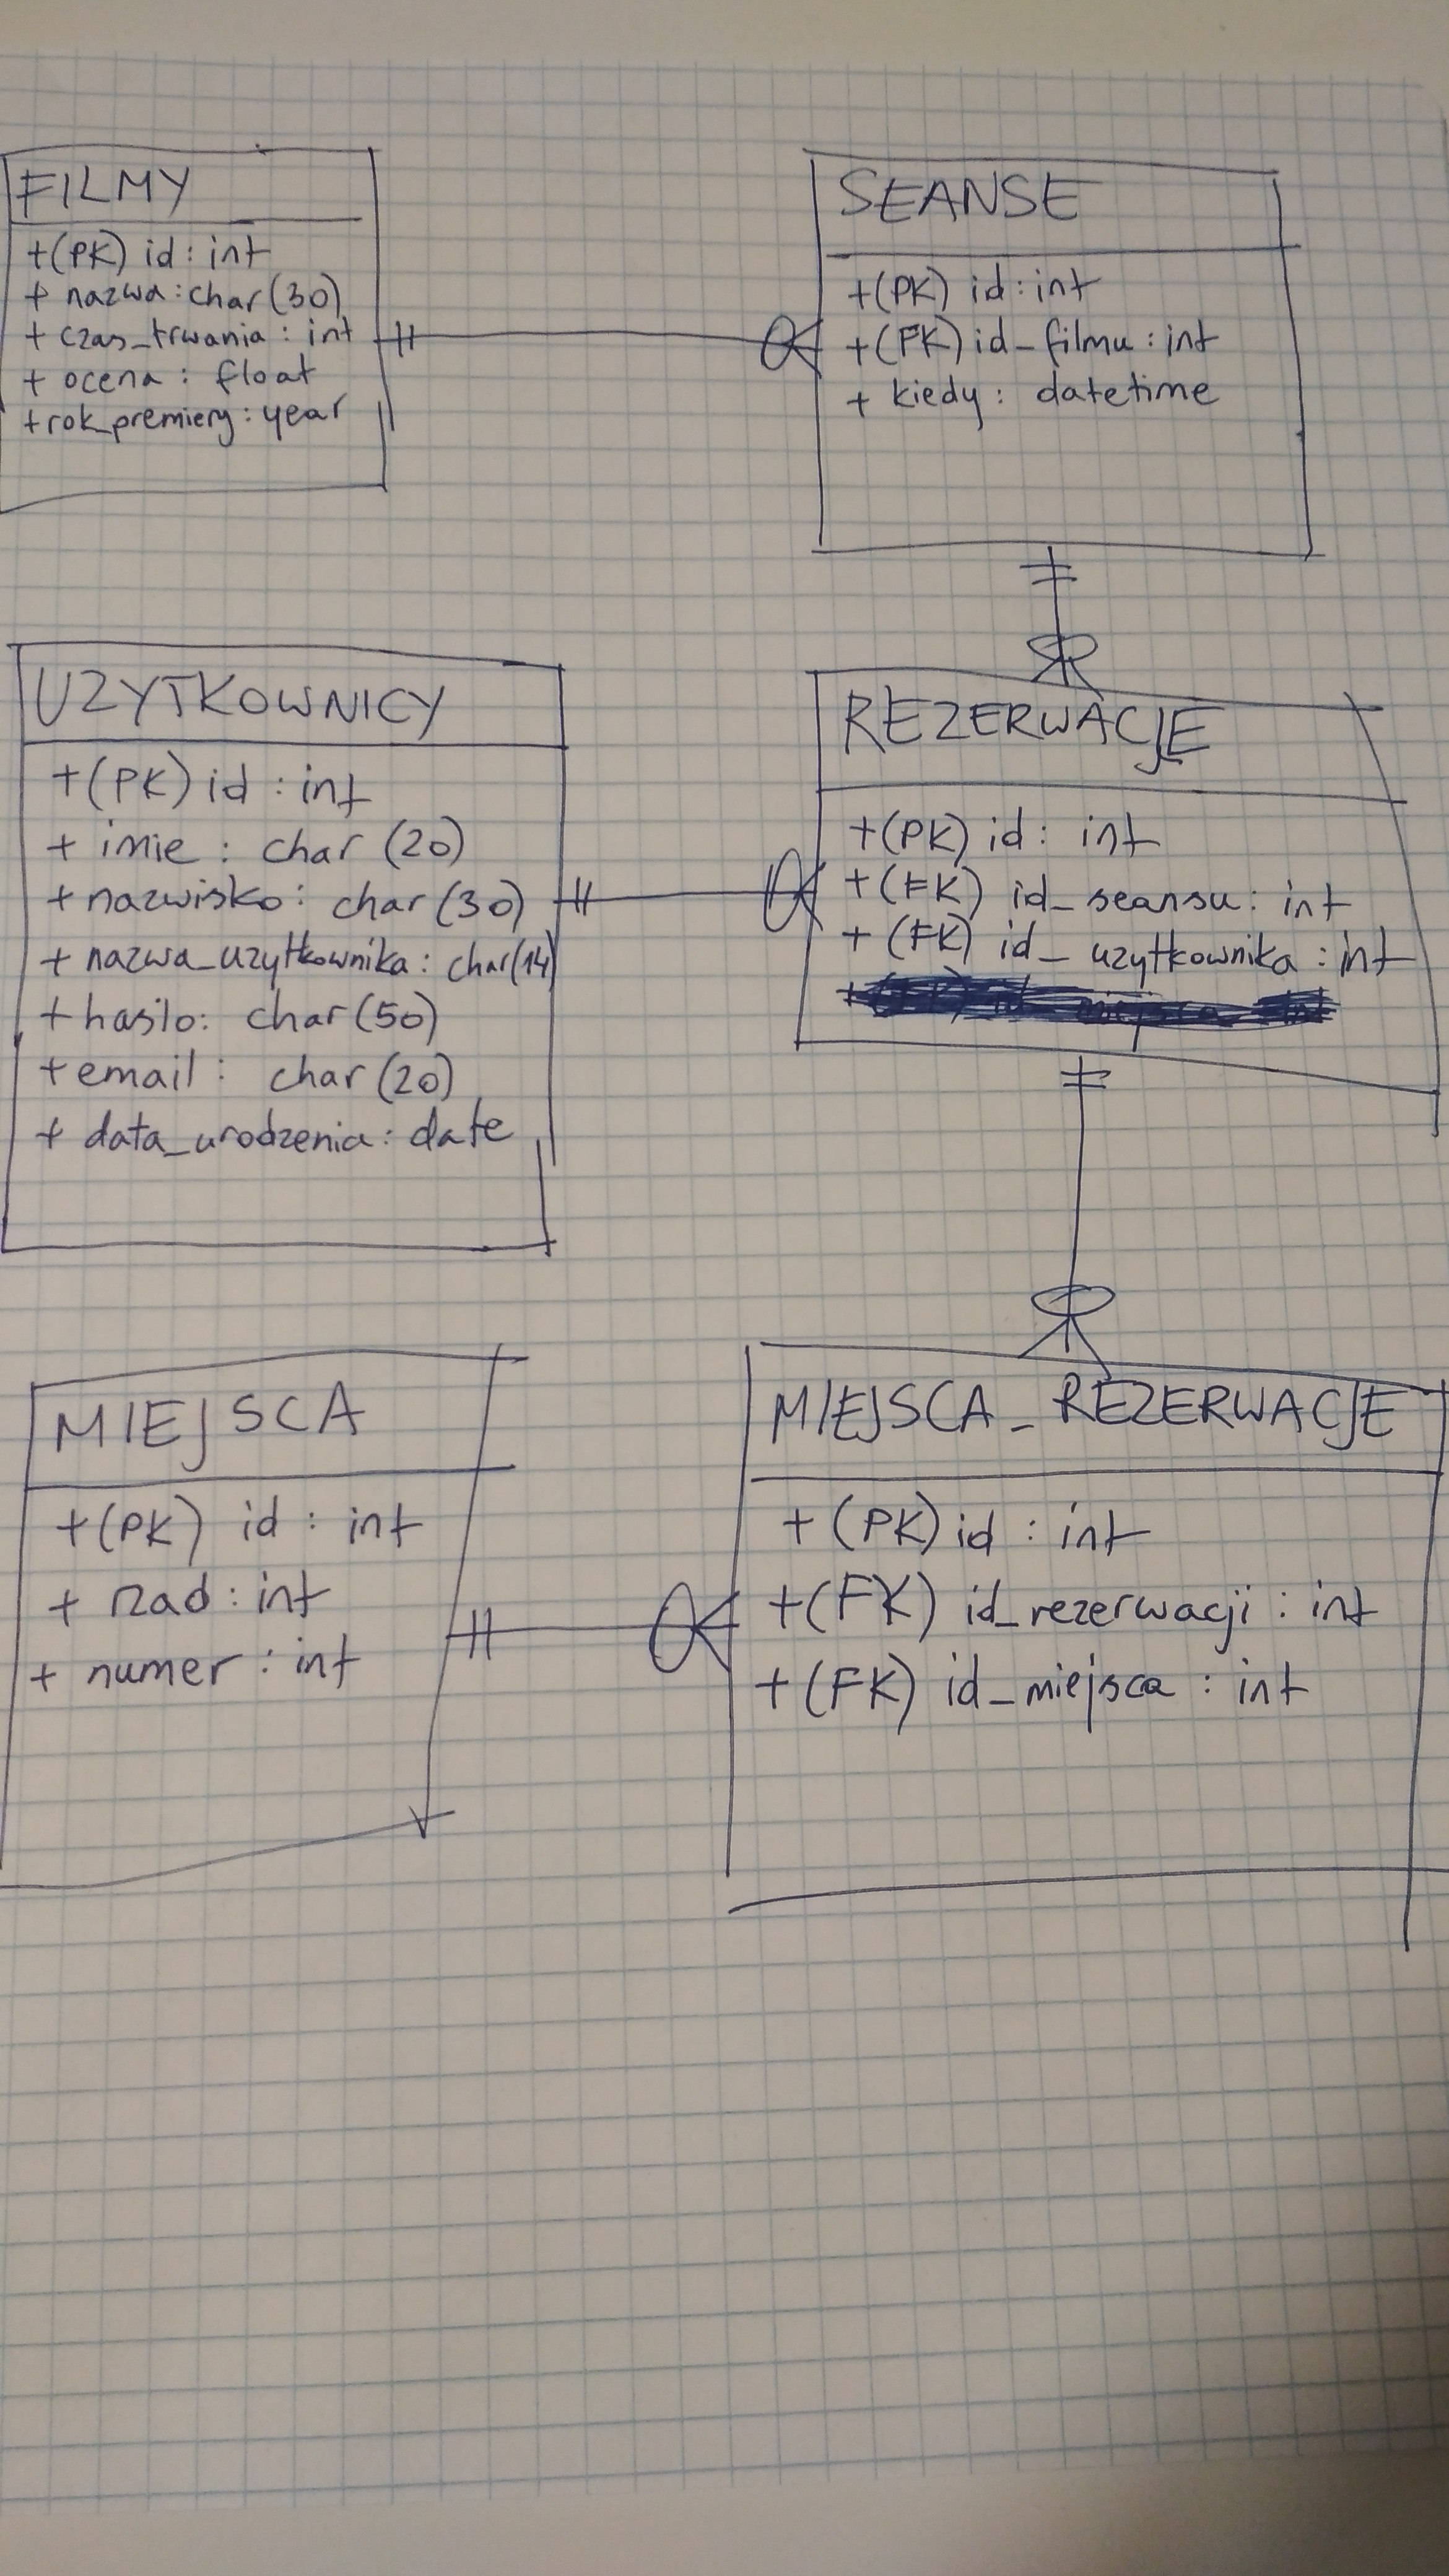 FILMY
+(PK) id : int
+ nazwa : char (30)
+ czas_trwania : int
+ ocena : float
+ rok_premiery : year
SEANSE
+(PK) id : int
+(FK) id_filmu : int
+ kiedy : datetime
UZYTKOWNICY
+(PK) id : int
+ imie : char (20)
+ nazwisko : char (30)
+ nazwa_uzytkownika : char(14)
+ haslo : char (50)
+ email : char (20)
+ data_urodzenia : date
REZERWACJE
+(PK) id : int
+(FK) id_seansu : int
+ (FK) id_uzytkownika : int
MIEJSCA
+(PK) id : int
+ rzad : int
+ numer : int
MIEJSCA_REZERWACJE
+ (PK) id : int
+(FK) id_rezerwacji : int
+(FK) id_miejsca : int